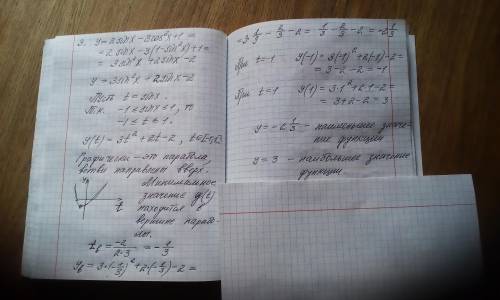 3. y = 2 sin x - 3 cos² x + 1 =
= 2 sin x - 3(1 - sin² x) + 1 =
= 3 sin² x + 2 sin x - 2
y = 3 sin² x + 2 sin x - 2
Пусть t = sin x.
Т.к. -1 ≤ sin x ≤ 1, то
-1 ≤ t ≤ 1.
y(t) = 3t² + 2t - 2,
Графически - это парабола,
ветви направлены вверх.
y
t
Минимальное
значение y(t)
находится в
вершине парабо-
лы.
t₆ = -2/2·3 = -1/3
y₆ = 3·(-1/3)² + 2·(-1/3) - 2 =
= 3 · 1/3 - 2/3 - 2 = 1/3 - 2/3 - 2 = -2 1/3
при t = -1 y(-1) = 3(-1)² + 2(-1) - 2 =
= 3 - 2 - 2 = -1
при t = 1 y(1) = 3·1² + 2·1 - 2 =
= 3 + 2 - 2 = 3
y = -2 1/3 - наименьшее значе-
ние функции
y = 3 - наибольшее значение
функции